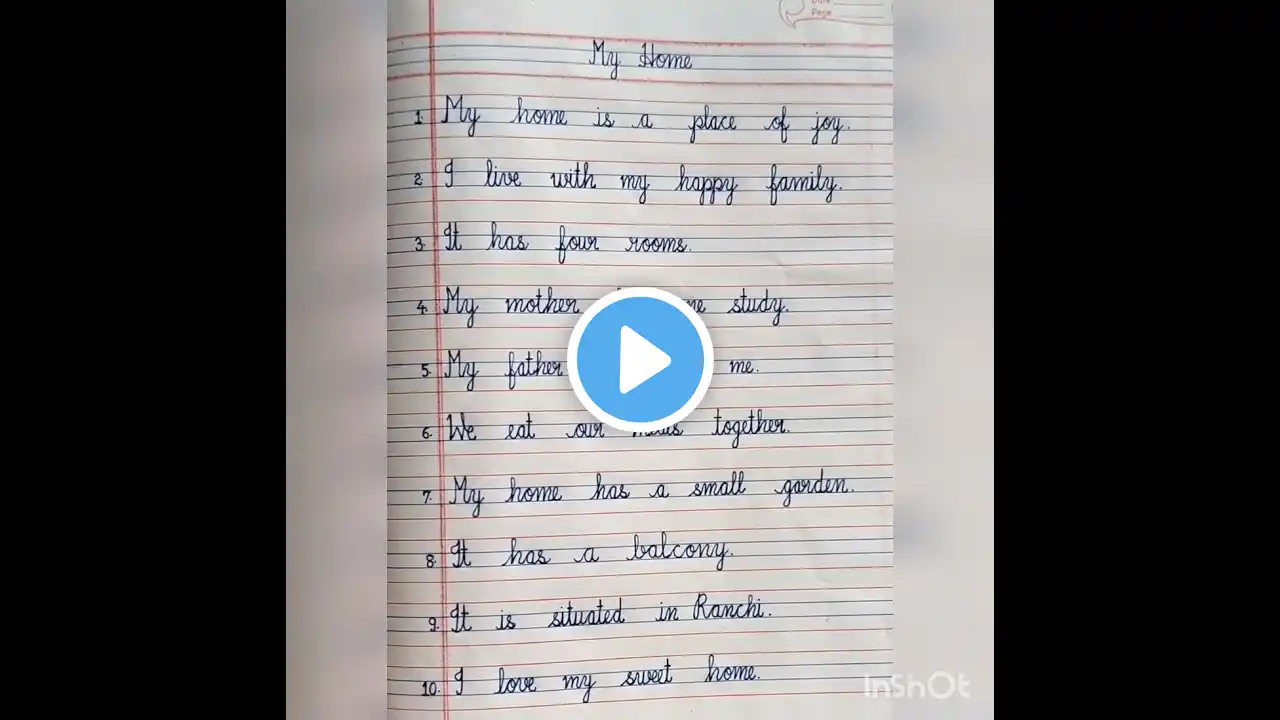 Page
My Home
1. My home is a place of joy.
2. I live with my happy family.
3. It has four rooms.
4. My mother me study.
5. My father me.
6. We eat our meals together.
7. My home has a small garden.
8. It has a balcony.
9. It is situated in Ranchi.
10. I love my sweet home.
InShOt